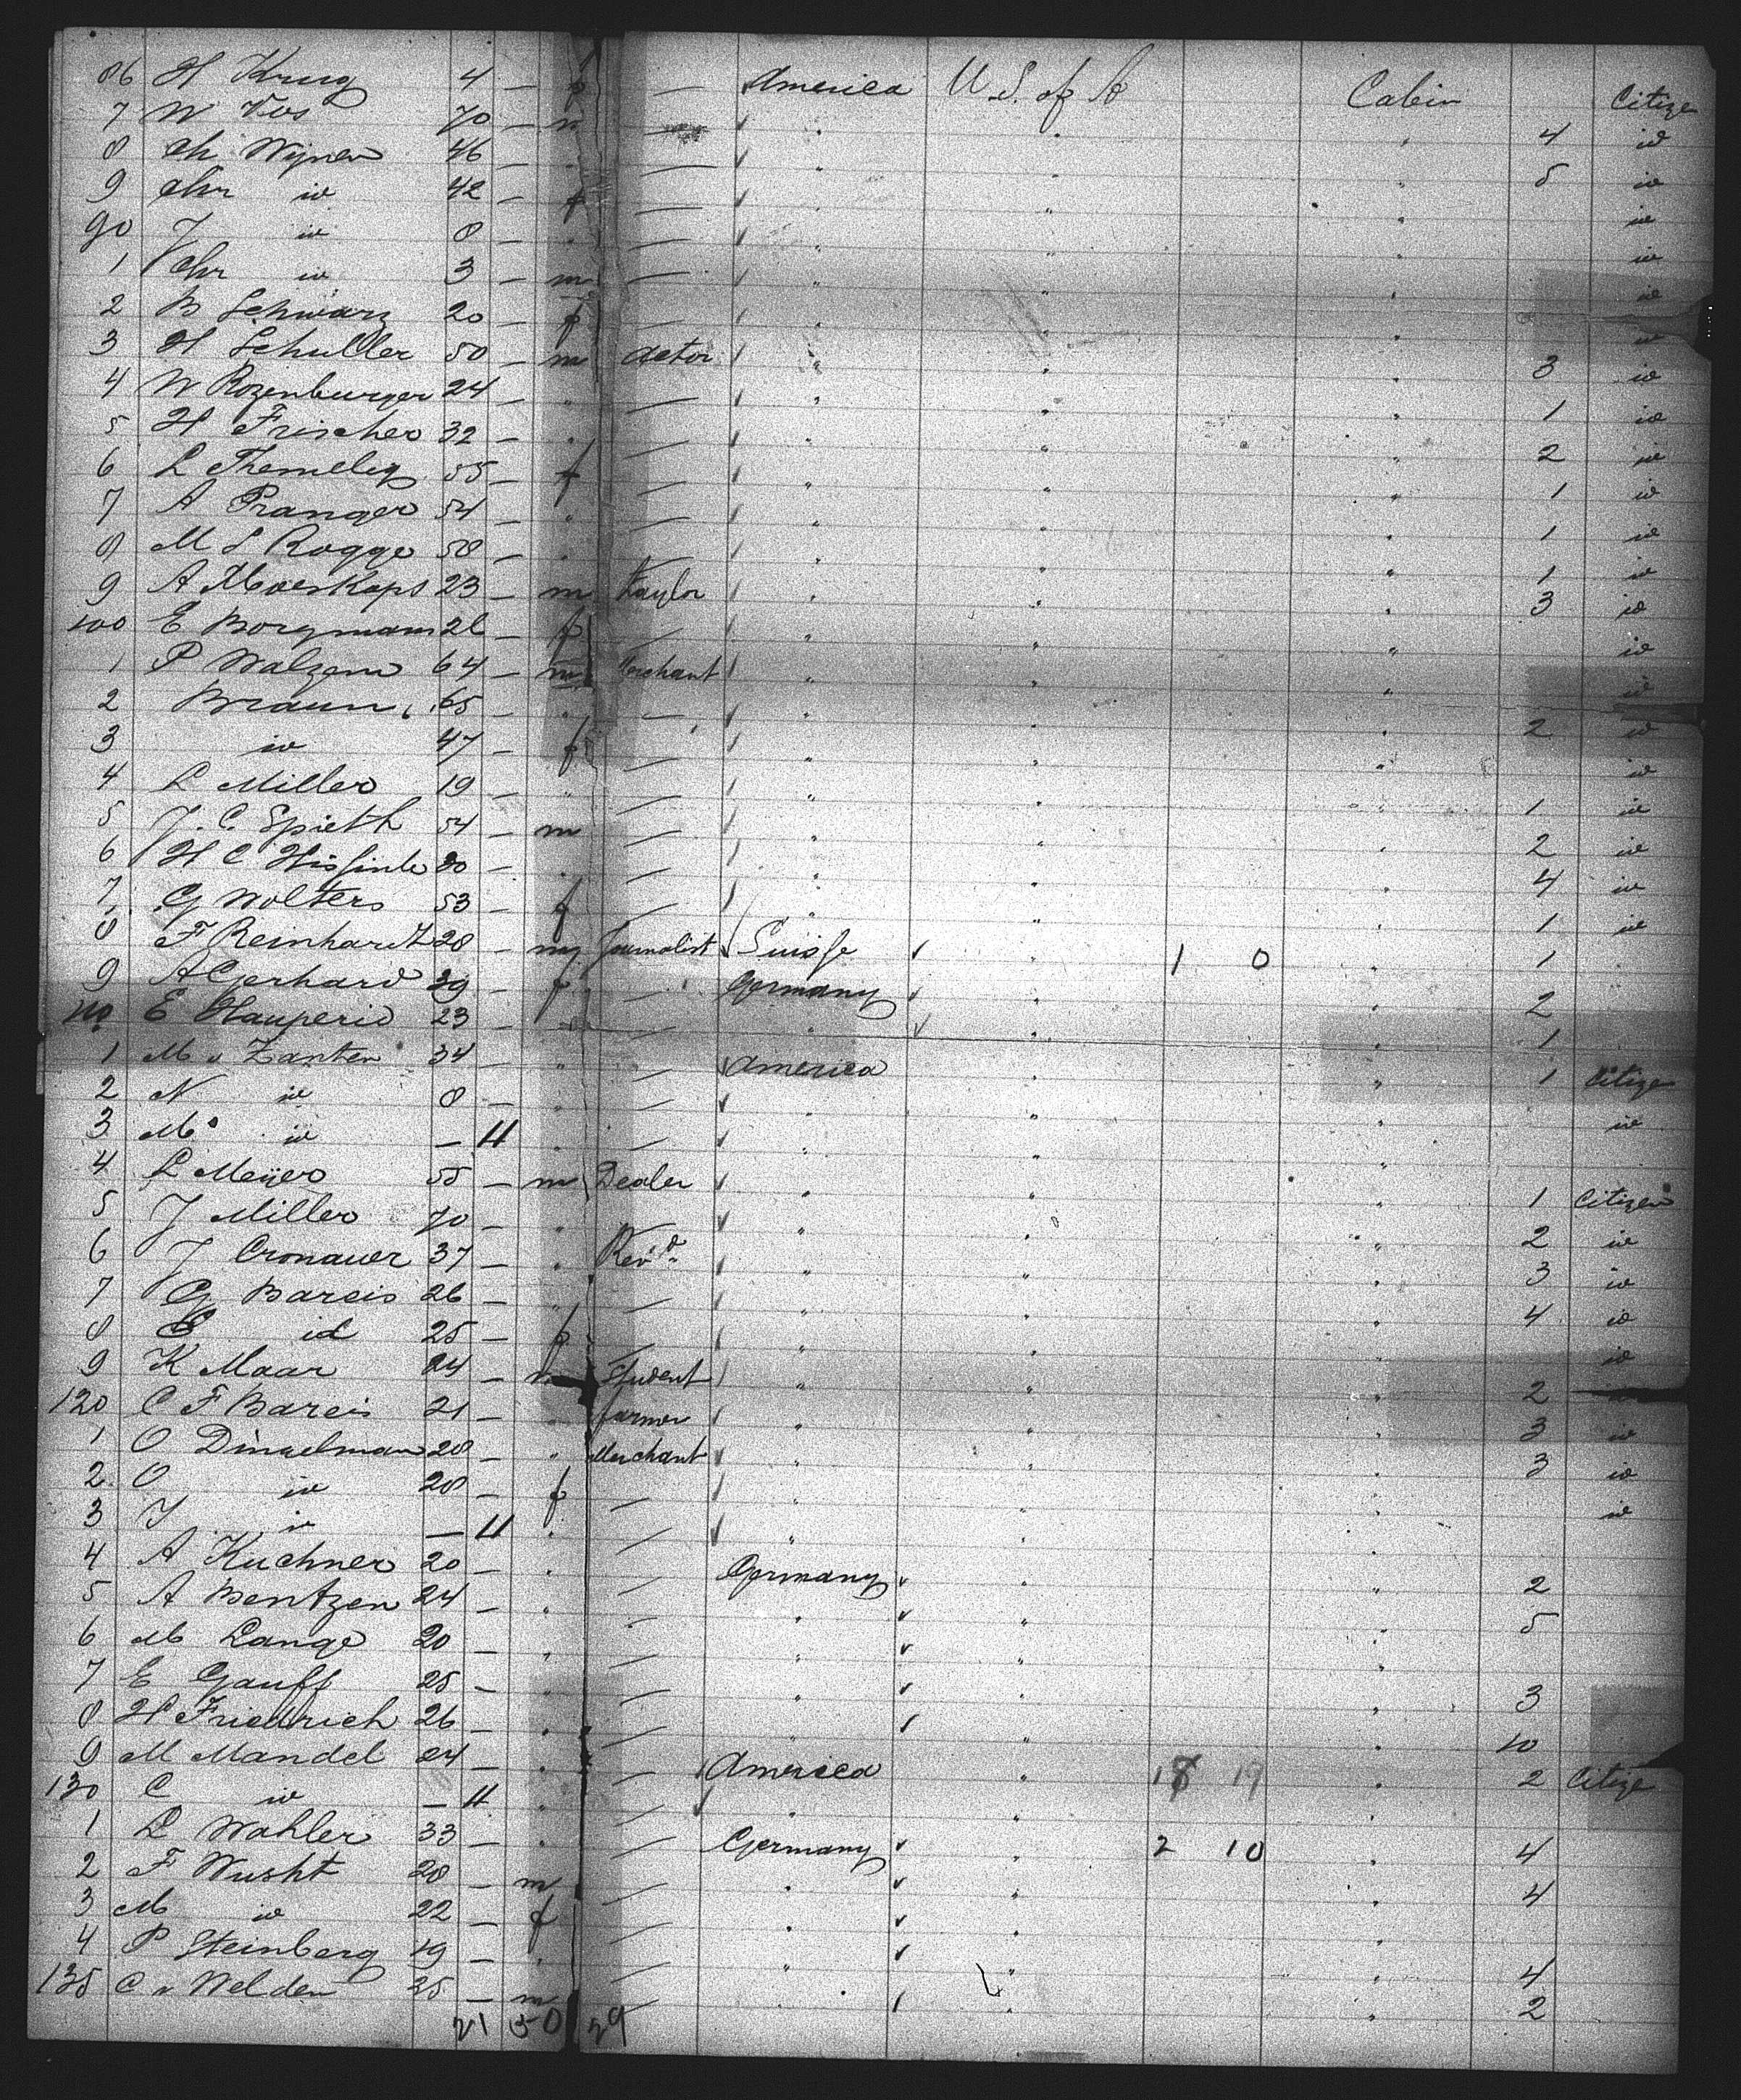 86 H Krug 4 — f — America U.S. of A Cabin Citize
7 W Vos 70 — m — " " " 4 id
8 Ch Wijner 46 — " — " " " 5 id
9 Chr id 42 — f — " " " id
90 J id 8 — " — " " " id
1 Chr id 3 — m — " " " id
2 B Schwarz 20 — f — " " " id
3 H Schuller 50 — m actor " " " 3 id
4 W Rozenburger 24 — " — " " " 1 id
5 H Frischer 32 — " — " " " 2 id
6 L 55 — f — " " " 1 id
7 A Pranger 54 — " — " " " 1 id
8 M S Rogge 58 — " — " " " 1 id
9 A Moerkops 23 — m taylor " " " 3 id
100 E Borgmann — f — " " " id
1 P Walzem 64 — m Merchant " " " id
2 Braun 65 — " — " " " 2 id
3 id 47 — f — " " " id
4 L Miller 19 — " — " " " 1 id
5 J. C. Spieth 54 — m — " " " 2 id
6 H C — " — " " " 4 id
7 G Wolters 53 — f — " " " 1 id
8 F Reinhardt 28 — m Journalist Suisse " 1 0 " 1
9 A Gerhard 39 — f — Germany " " 2
110 E 23 — " — " " " 1
1 M v Zanten 34 — " — America " " 1 Citize
2 N id 8 — " — " " " id
3 M id — 11 " — " " "
4 L Meijer 55 — m Dealer " " " 1 Citizen
5 J Miller 70 — " " " " 2 id
6 J Cronauer 37 — " Rev'd " " " 3 id
7 G Bareis 26 — " — " " " 4 id
8 id 25 — f — " " " id
9 K Maar 24 — Student " " " 2
120 C F Bareis 21 — " farmer " " " 3 id
1 O Dingelman 28 — " Merchant " " " 3 id
2 O id 28 — f — " " " id
3 J id — 11 " — " " "
4 A Kuchner 20 — " — Germany " " 2
5 A Bentzen 24 — " — " " " 5
6 M Lange 20 — " — " " "
7 E Gauff 25 — " — " " " 3
8 H Friedrich 26 — " — " " " 10
9 M Mandel 24 — " — America " 19 " 2 Citize
130 C id — 11 " — " " "
1 L Wahler 33 — " — Germany " 2 10 " 4
2 F Wusht 28 — m — " " " 4
3 M id 22 — f — " " "
4 P Steinberg 19 — " — " " " 4
135 C v Welden 35 — m — " " " 2
21 50 29